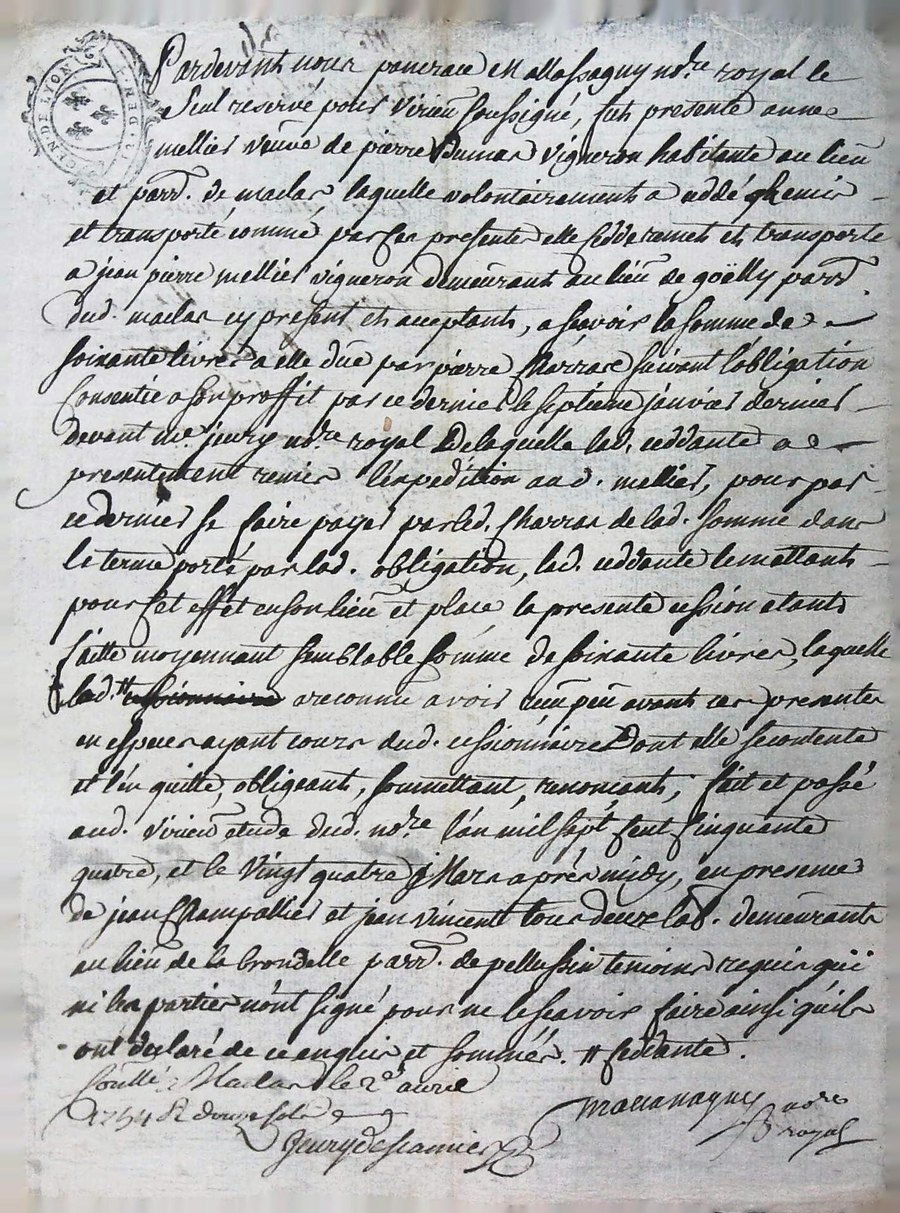 GEN. DE LYON
Pardevant nous pancrace massaguy no.re royal le
seul reservé pour virieu soussigné, fut presente anne
mellier veuve de pierre Dumas vigneron habitante au lieu
et parr. de maclas laquelle volontairement a ceddé remis
et transporté comme par ces presentes elle cedde remet et transporte
a jean pierre mellier vigneron demeurant au lieu de goëlly parr.
dud. maclas cy present et acceptant, a scavoir la somme de
soixante livres a elle due par pierre Charras suivant l'obligation
Consentie a son proffit par ce dernier le septieme janvier dernier
devant m.e jeury no.re royal De laquelle lad. ceddante a
presentement remis l'expedition aud. mellier, pour par
ce dernier se faire payer par led. Charras de lad. somme dans
le terme porté par lad. obligation, lad. ceddante le mettant
pour cet effet en son lieu et place la presente cession etant
faitte moyennant semblable somme de soixante livres, laquelle
lad. # cessionnaire a reconnu avoir reçu peu avant ces presentes
en especes ayant cours dud. cessionnaire Dont elle se contente
et l'en quitte, obligeant, soumettant, renoncant; fait et passé
aud. virieu etude dud. no.re l'an mil sept cent cinquante
quatre, et le vingt quatre Mars après midy, en presence
de jean Champallier et jean vincent tous deux lab. demeurants
au lieu de la brondelle parr. de pellussin temoins requis qui
ni les parties n'ont signé pour ne le scavoir faire ainsi qu'ils
ont declaré de ce enquis et sommés. # ceddante.
Conllé a Maclas le 2.e avril
1754 R douze sols
massaguy no.re
royal
Jeurydescamier